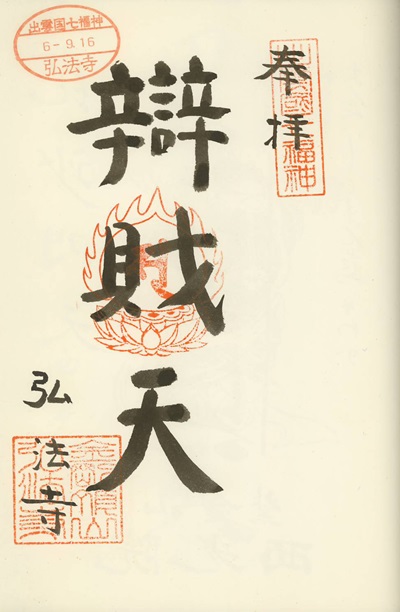 奉拝
出雲國七福神
辯財天
弘法寺
出雲国七福神
6-9.16
弘法寺